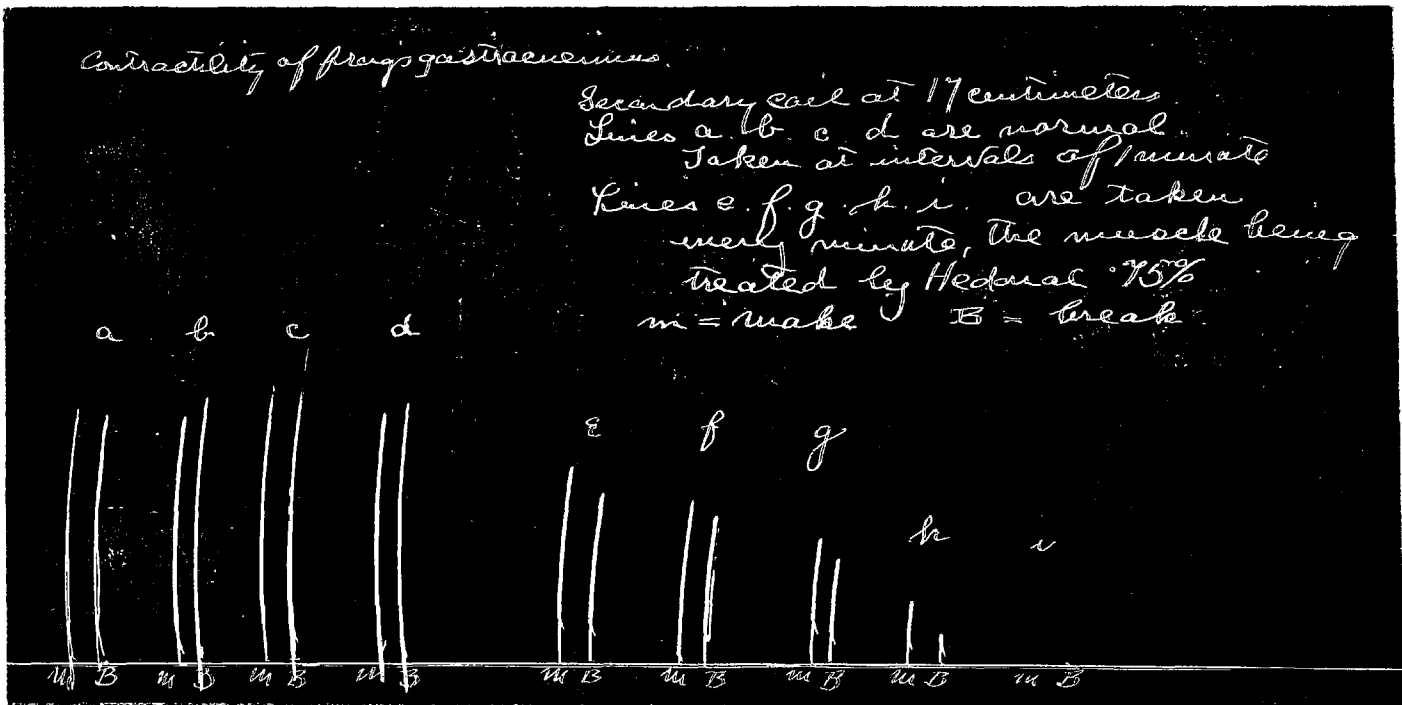 Contractility of frog's gastrocnemius.
Secondary coil at 17 centimeters
Lines a. b. c. d are normal.
Taken at intervals of 1 minute
Lines e. f. g. h. i. are taken
every minute, the muscle being
treated by Hedonal .75%
m = make B = break.
a b c d
e f g
h i
m B m B m B m B m B m B m B m B m B